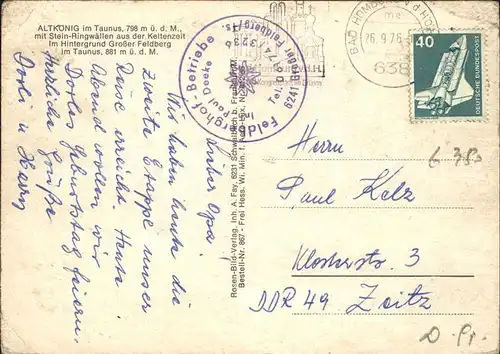 ALTKÖNIG im Taunus, 798 m ü. d. M.,
mit Stein-Ringwällen aus der Keltenzeit
Im Hintergrund Großer Feldberg
im Taunus, 881 m ü. d. M.
Feldberghof-Betriebe
Paul Deeke
6241 Großer Feldberg/Ts.
BAD HOMBURG v d HÖHE
26. 9. 76
638
40
DEUTSCHE BUNDESPOST
Lieber Opa!
Wir haben heute die
zweite Etappe unser
Reise erreicht. Heute
Abend wollen wir
Dorles Geburtstag feiern.
Herzliche Grüße
Rosen-Bild-Verlag, Inh. A. Fay, 6231 Schwalbach b. Frankfurt/M.
Bestell-Nr. 867 - Frei Hess. Wi. Min. f.
Herrn
Paul Kelz
Klosterstr. 3
DDR 49 Zeitz